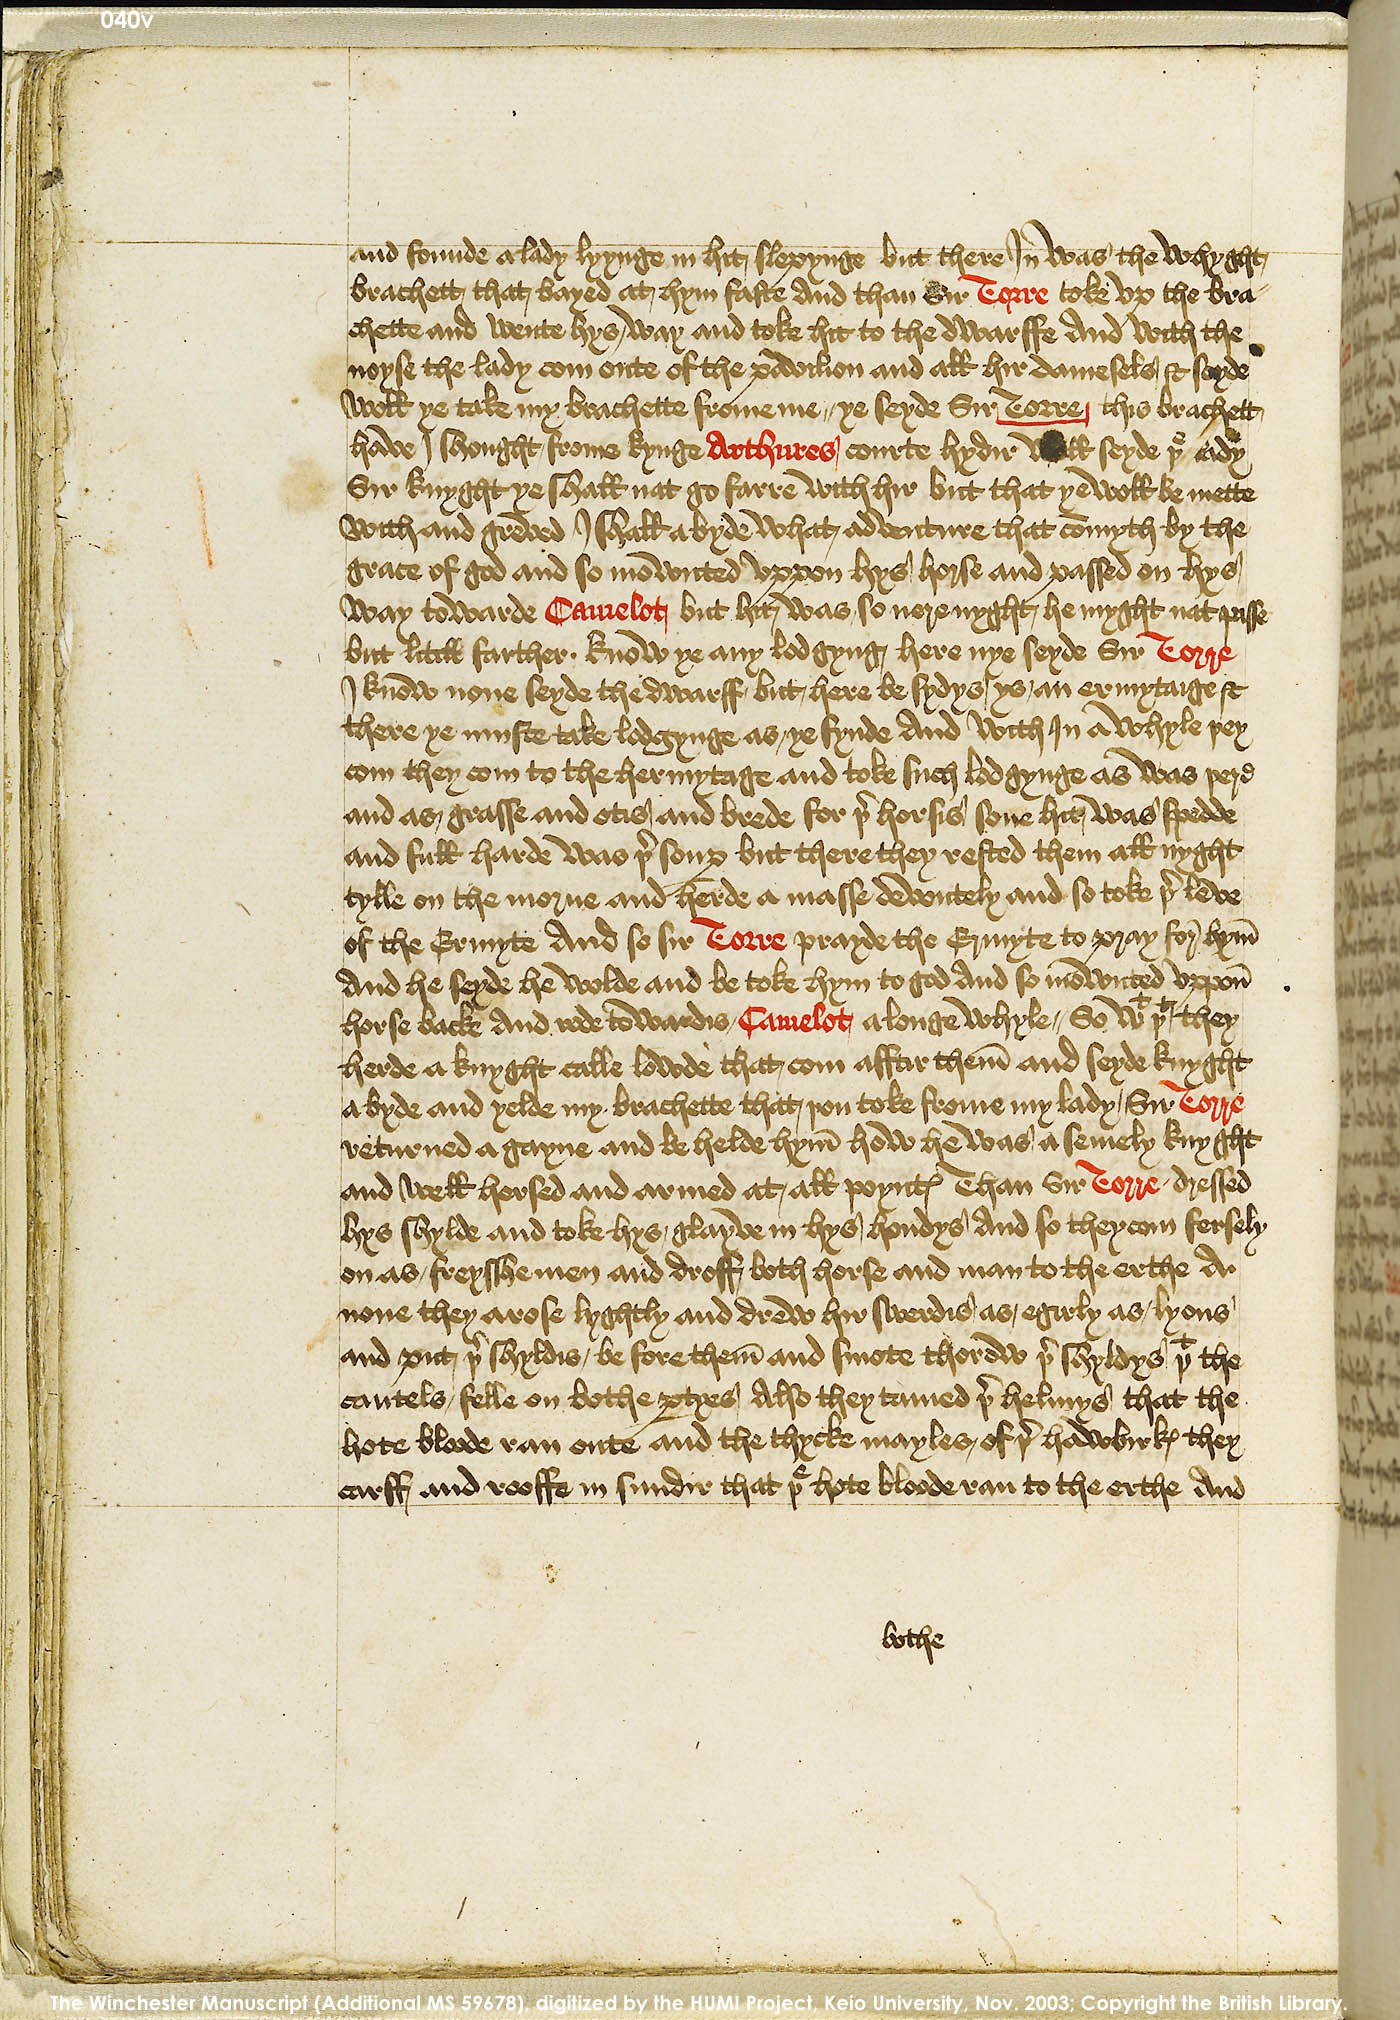 040v
and founde a lady lyynge in hit slepynge but there In was the whyght
brachett that bayed at hym faste And than Sir Torre toke vp the bra
chette and wente hys way and toke hit to the dwarffe And with the
noyse the lady com oute of the pavilion and all hir damesels & seyde
Woll ye take my brachette frome me // ye seyde Sir Torre this brachett
have I shought frome kynge Arthures courte hydir well seyde þe lady
Sir knyght ye shall nat go farre with hir but that ye woll be mette
with and greved I shall a byde what adventure that comyth by the
grace of god and so mownted vppon hys horse and passed on hys
way towarde Camelot but hit was so nere nyght he myght nat passe
but litill farther · know ye any lodgyng here nye seyde Sir Torre
I know none seyde the dwarff but here be sydys ys an ermytaige &
there ye muste take lodgynge as ye fynde And with In a whyle þey
com they com to the hermytage and toke such lodgynge as was þere
and as grasse and otis and brede for þer horsis sone hit was spedde
and full harde was þer soup but there they rested them all nyght
tylle on the morne and herde a masse devoutely and so toke þer leve
of the Ermyte And so sir Torre prayde the Ermyte to pray for hym
And he seyde he wolde and be toke hym to god And so mownted vppon
horse backe And rode towardis Camelot a longe whyle // So wt þt they
herde a knyght calle lowde that com afftir them and seyde knyght
a byde and yelde my brachette that þou toke frome my lady / Sir Torre
returned a gayne and be helde hym how he was a semely knyght
and well horsed and armed at all poyntes Than Sir Torre dressed
hys shylde and toke hys glayve in hys hondys And so they com fersely
on as freysshe men and droff both horse and man to the erthe A
none they arose lyghtly and drew hir swerdis as egirly as lyons
and put þer shyldis be fore them and smote thorow þer shyldys þt the
cantels felle on bothe ptyes Also they tamed þer helmys that the
hote bloode ran oute and the thycke mayles of þer hawbirkes they
carff and rooffe in sundir that þe hote bloode ran to the erthe And
bothe
The Winchester Manuscript (Additional MS 59678), digitized by the HUMI Project, Keio University, Nov. 2003; Copyright the British Library.